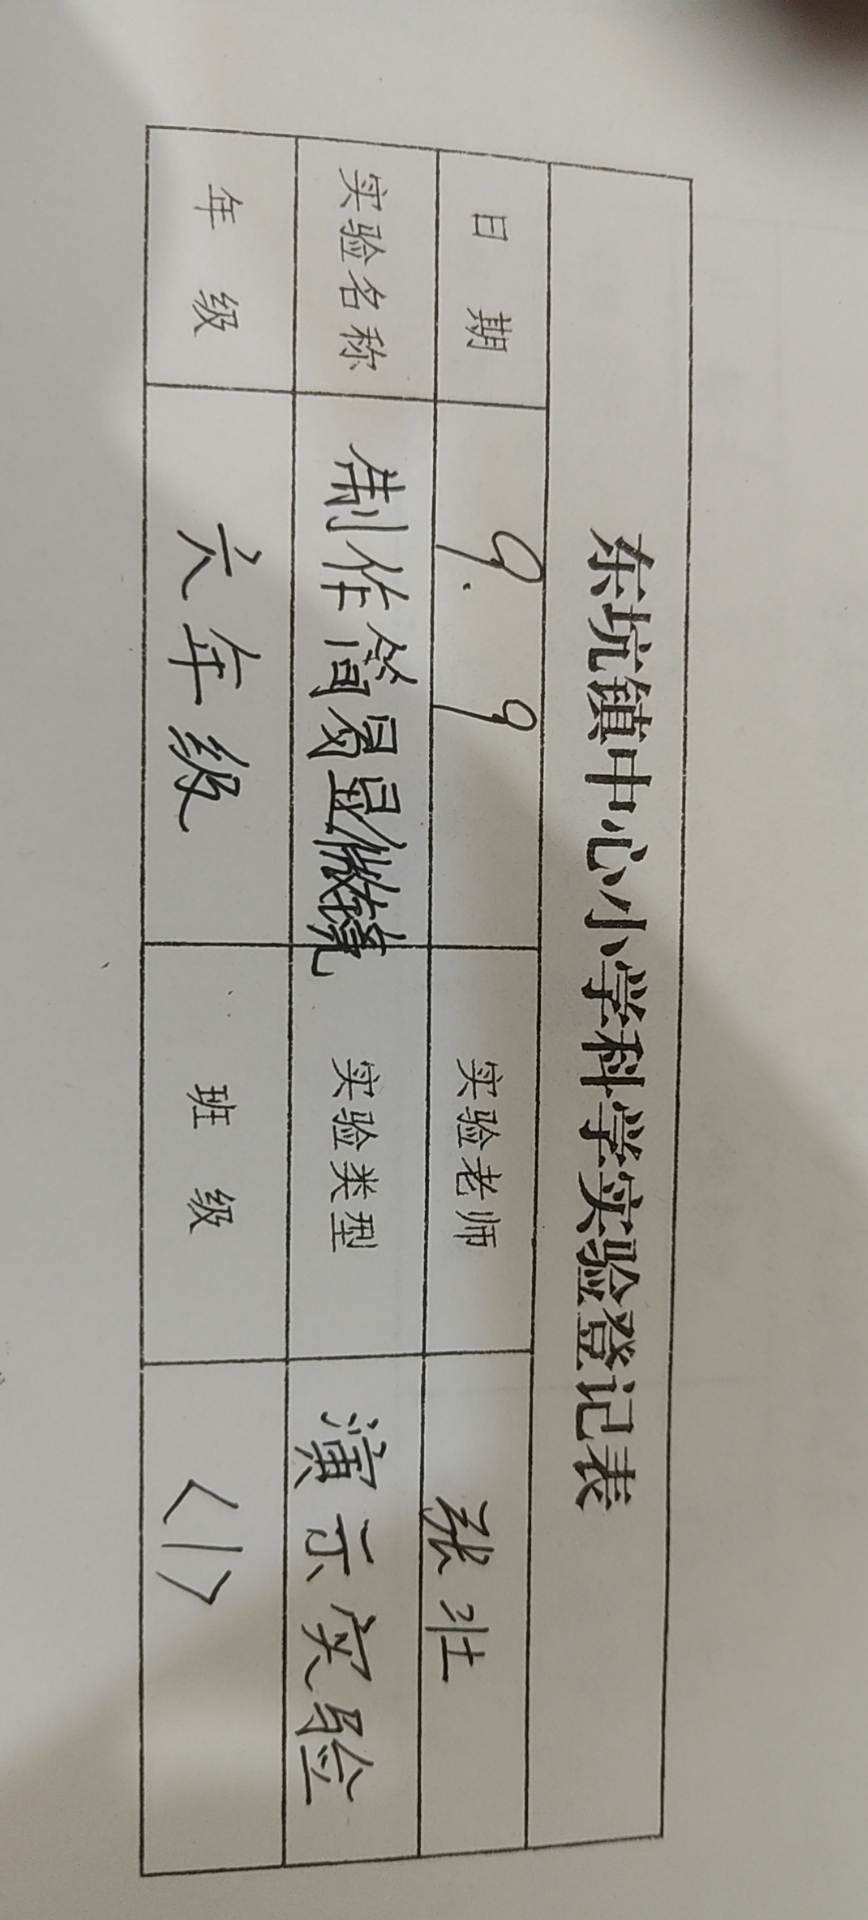 东坑镇中心小学科学实验登记表
日期 9.9 实验老师 张壮
实验名称 制作简易显微镜 实验类型 演示实验
年级 六年级 班级 〈1〉